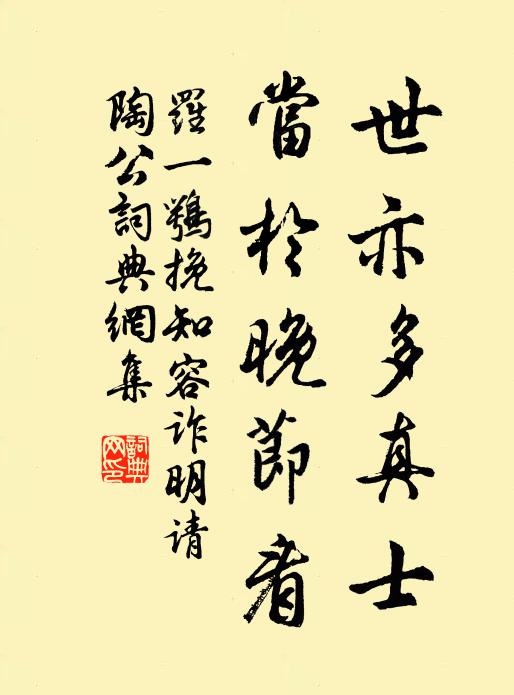 世亦多真士
當於晚節看
羅一鶚挽知容诈明请
陶公詞典網集
詞典网印